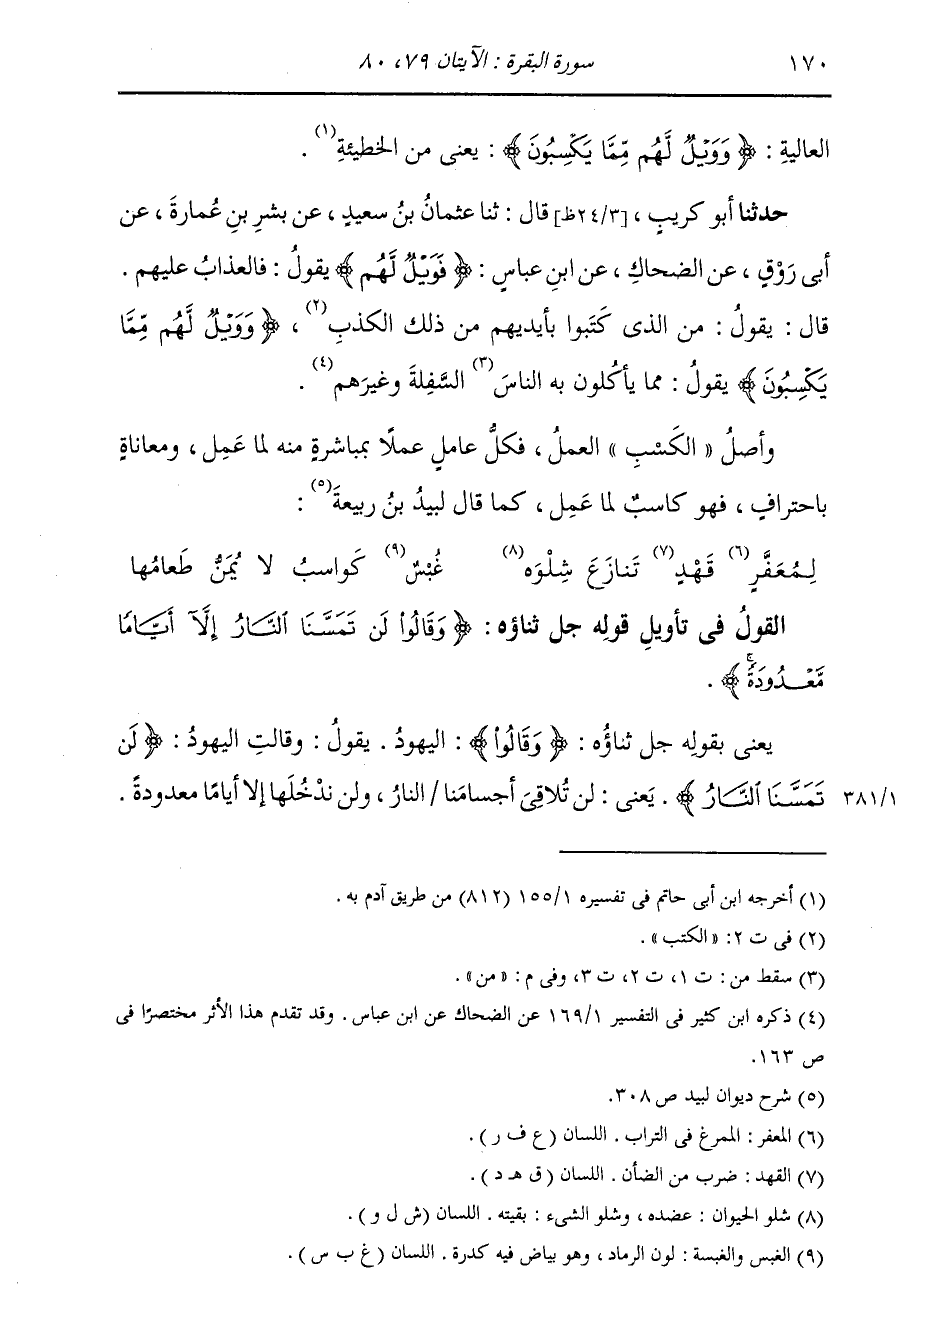 ١٧٠ سورة البقرة : الآيتان ٧٩، ٨٠
العاليةِ : ﴿ وَوَيْلٌ لَّهُم مِّمَّا يَكْسِبُونَ ﴾ : يعنى من الخطيئةِ(١) .
حدثنا أبو كريبٍ ، [٢٤/٣ظ] قال : ثنا عثمانُ بنُ سعيدٍ ، عن بشرِ بنِ عُمارةَ ، عن
أبى رَوْقٍ ، عن الضحاكِ ، عن ابنِ عباسٍ : ﴿ فَوَيْلٌ لَّهُم ﴾ يقولُ : فالعذابُ عليهم .
قال : يقولُ : من الذى كَتَبوا بأيديهم من ذلك الكذبِ(٢) ، ﴿ وَوَيْلٌ لَّهُم مِّمَّا
يَكْسِبُونَ ﴾ يقولُ : مما يأكُلون به الناسَ(٣) السَّفِلةَ وغيرَهم(٤) .
وأصلُ « الكَسْبِ » العملُ ، فكلُّ عاملٍ عملًا بمباشرةٍ منه لما عَمِل ، ومعاناةٍ
باحترافٍ ، فهو كاسبٌ لما عَمِل ، كما قال لبيدُ بنُ ربيعةَ(٥) :
لِمُعَفَّرٍ(٦) قَهْدٍ(٧) تَنازَعَ شِلْوَه(٨) غُبْسٌ(٩) كَواسبُ لا يُمَنُّ طَعامُها
القولُ فى تأويلِ قولِه جل ثناؤه : ﴿ وَقَالُوا۟ لَن تَمَسَّنَا ٱلنَّارُ إِلَّآ أَيَّامًا
مَّعْدُودَةً ۚ ﴾ .
يعنى بقولِه جل ثناؤُه : ﴿ وَقَالُوا۟ ﴾ : اليهودُ . يقولُ : وقالتِ اليهودُ : ﴿ لَن
تَمَسَّنَا ٱلنَّارُ ﴾ . يَعنى : لن تُلاقِىَ أجسامَنا / النارُ ، ولن ندْخُلَها إلا أيامًا معدودةً . ٣٨١/١
(١) أخرجه ابن أبى حاتم فى تفسيره ١٥٥/١ (٨١٢) من طريق آدم به .
(٢) فى ت ٢: « الكتب » .
(٣) سقط من : ت ١، ت ٢، ت ٣، وفى م : « من » .
(٤) ذكره ابن كثير فى التفسير ١٦٩/١ عن الضحاك عن ابن عباس . وقد تقدم هذا الأثر مختصرًا فى
ص ١٦٣.
(٥) شرح ديوان لبيد ص ٣٠٨.
(٦) المعفر : الممرغ فى التراب . اللسان (ع ف ر) .
(٧) القهد : ضرب من الضأن . اللسان (ق هـ د) .
(٨) شلو الحيوان : عضده ، وشلو الشىء : بقيته . اللسان (ش ل و) .
(٩) الغبس والغبسة : لون الرماد ، وهو بياض فيه كدرة . اللسان (غ ب س) .